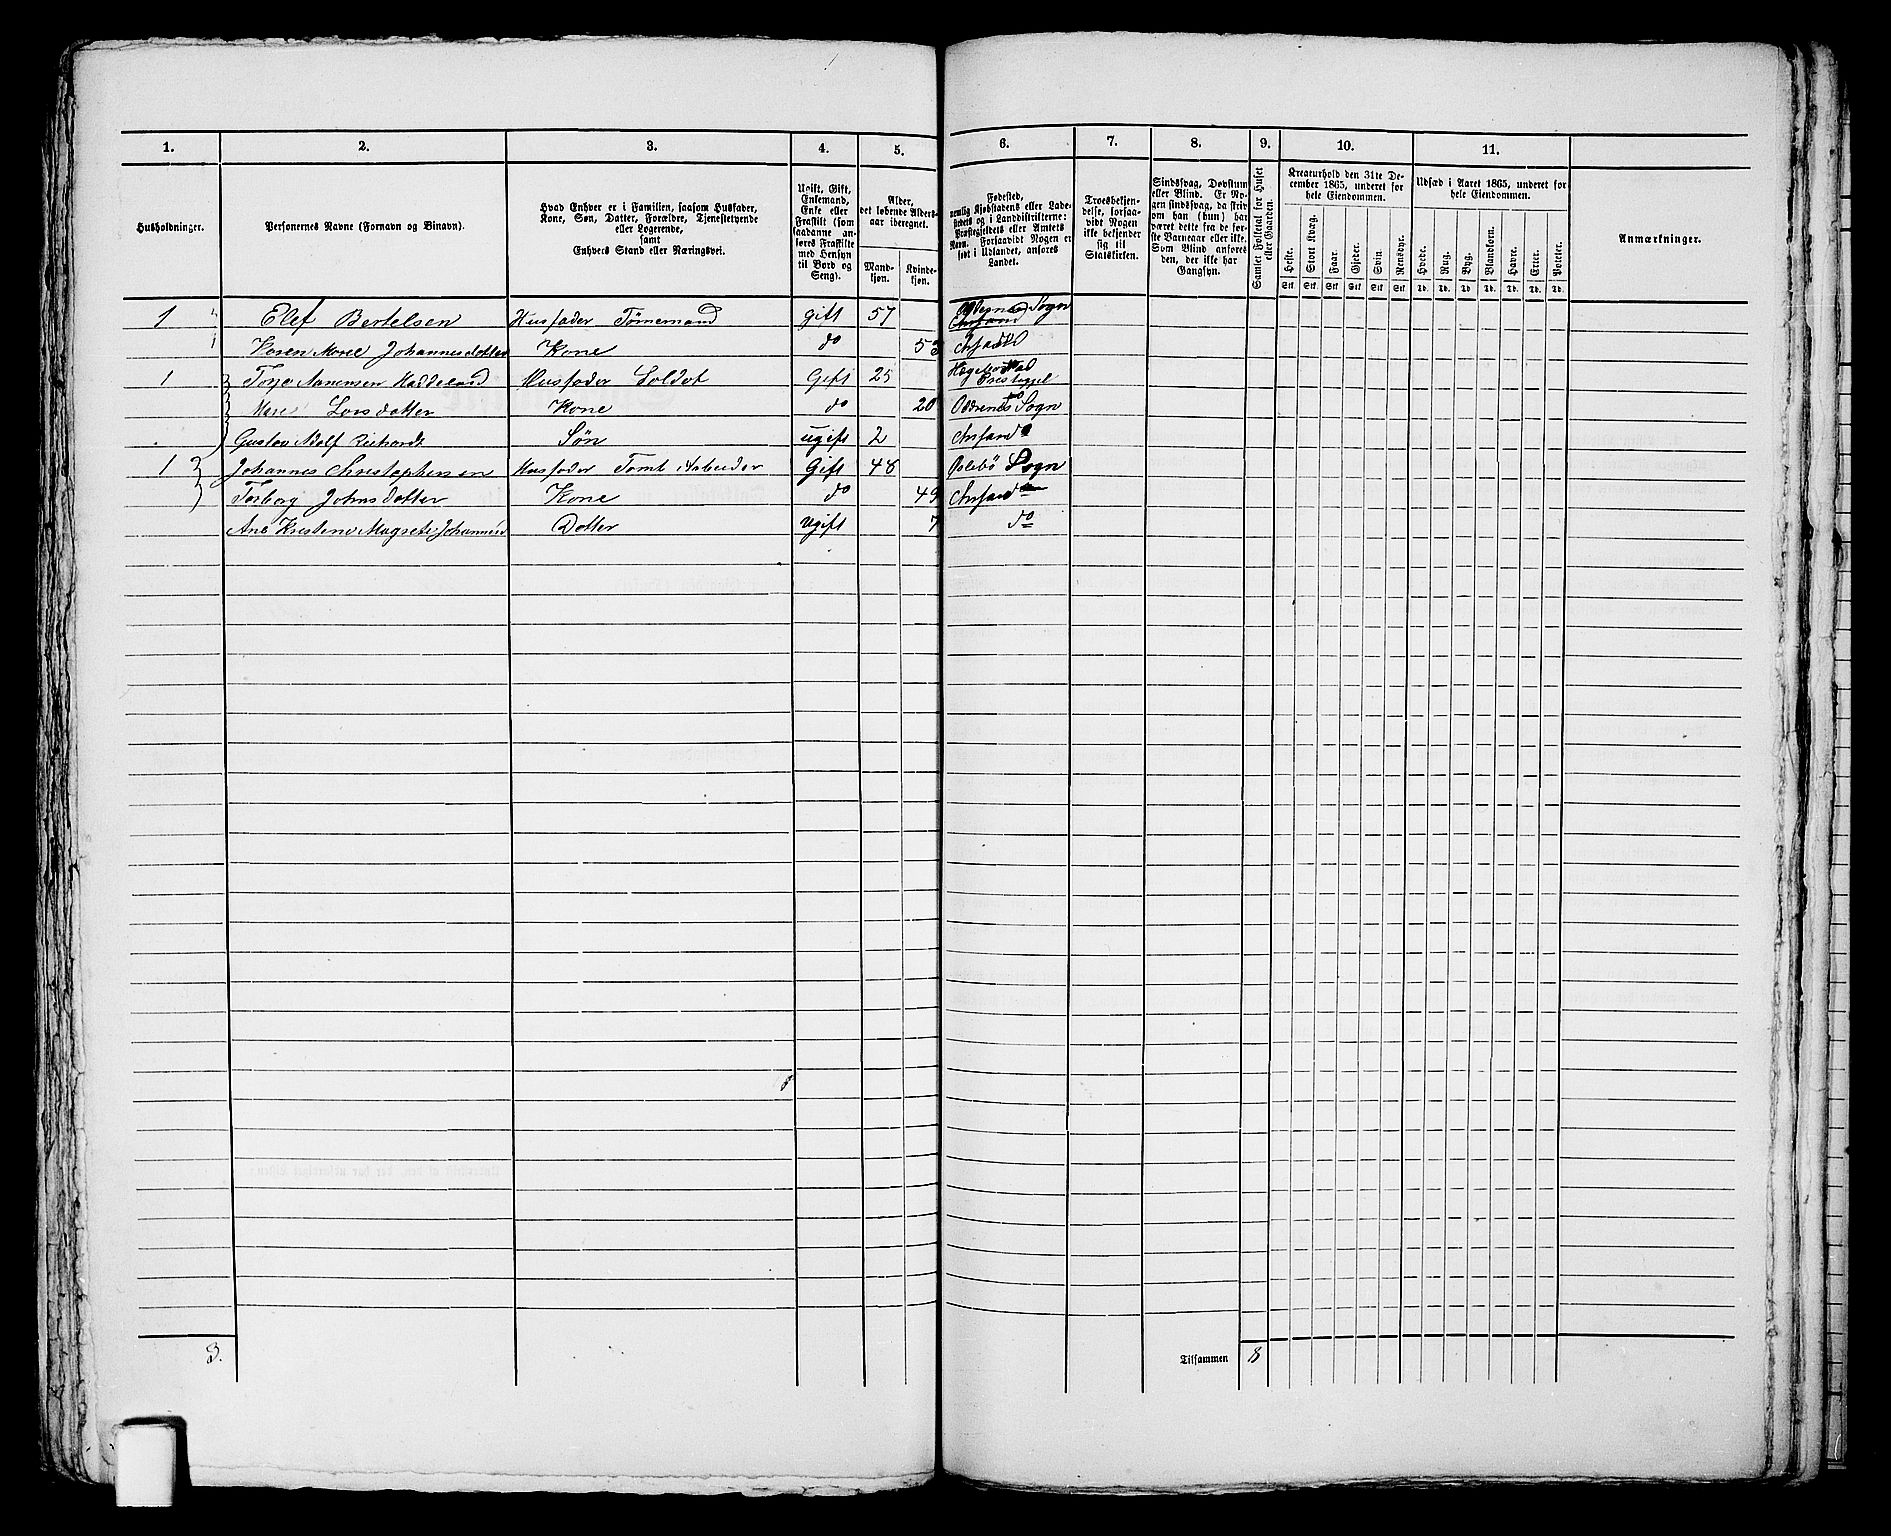 1. 2. 3. 4. 5. 6. 7. 8. 9. 10. 11.
Husholdninger.
Personernes Navne (Fornavn og Binavn).
Hvad Enhver er i Familien, saasom Husfader,
Kone, Søn, Datter, Forældre, Tjenestetyende
eller Logerende,
samt
Enhvers Stand eller Næringsvei.
Ugift, Gift,
Enkemand,
Enke eller
Fraskilt (som
saadanne anføres Fraskilte
med Hensyn
til Bord og
Seng).
Alder,
det løbende Alders-
aar iberegnet.
Mand-
kjøn.
Kvinde-
kjøn.
Fødested,
nemlig Kjøbstadens eller Lade-
stedets og i Landdistrikterne:
Præstegjeldets eller Amtets
Navn. Forsaavidt Nogen er
født i Udlandet, anføres
Landet.
Troesbekjen-
delse, forsaa-
vidt Nogen
ikke bekjender
sig til
Statskirken.
Sindssvag, Døvstum
eller Blind. Er No-
gen sindssvag, da skriv
om han (hun) har
været dette fra de før-
ste Barneaar eller ikke.
Som Blind anføres
den, der ikke har
Gangsyn.
Samlet Folketal for Huset
eller Gaarden.
Kreaturhold den 31te De-
cember 1865, underet for
hele Eiendommen.
Heste. Stort Kvæg. Faar. Gjeder. Svin Rensdyr.
Stk. Stk. Stk. Stk. Stk. Stk.
Udsæd i Aaret 1865, underet for
hele Eiendommen.
Hvede. Rug. Byg. Blandkorn. Havre. Erter. Poteter.
Td. Td. Td. Td. Td. Td. Td.
Anmærkninger.
1 Elef Bertelsen Husfader Tømemand gift 57 Sogn
Karen Marie Johannesdatter Kone do 53
1 Torje Aanensen Haddeland Husfader Soldat Gift 25
Mare Larsdatter Kone do 20 Oddrenes Sogn
Gustav Adolf Richardt Søn ugift 2 Chrsand
1 Johannes Christophersen Husfader Tomt Arbeider Gift 48 Oslebø Sogn
Torborg Johnsdatter Kone do 49 Chrsand
Ane Kristene Magrete Johannesd Datter ugift 7 do
3. Tilsammen 8